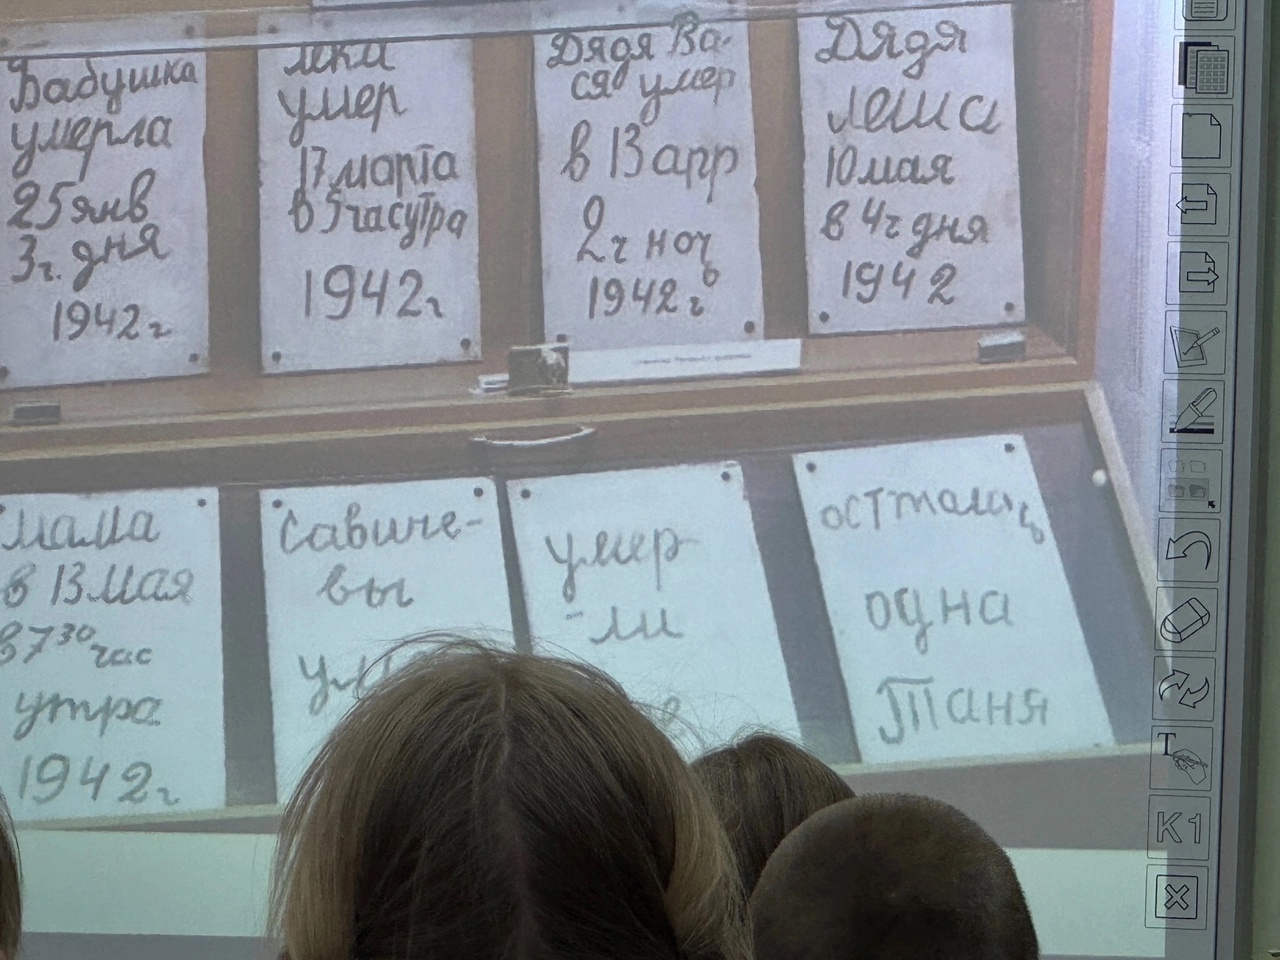 Бабушка
умерла
25 янв
3ч. дня
1942г
лека
умер
17 марта
в 5 час утра
1942г
Дядя Ва-
ся умер
в 13 апр
2ч ночь
1942г
Дядя
Леша
10 мая
в 4ч дня
1942
Мама
в 13 Мая
в 7 30 час
утра
1942г
Савиче-
вы
умер
-ли
осттались
одна
Таня
T
K1